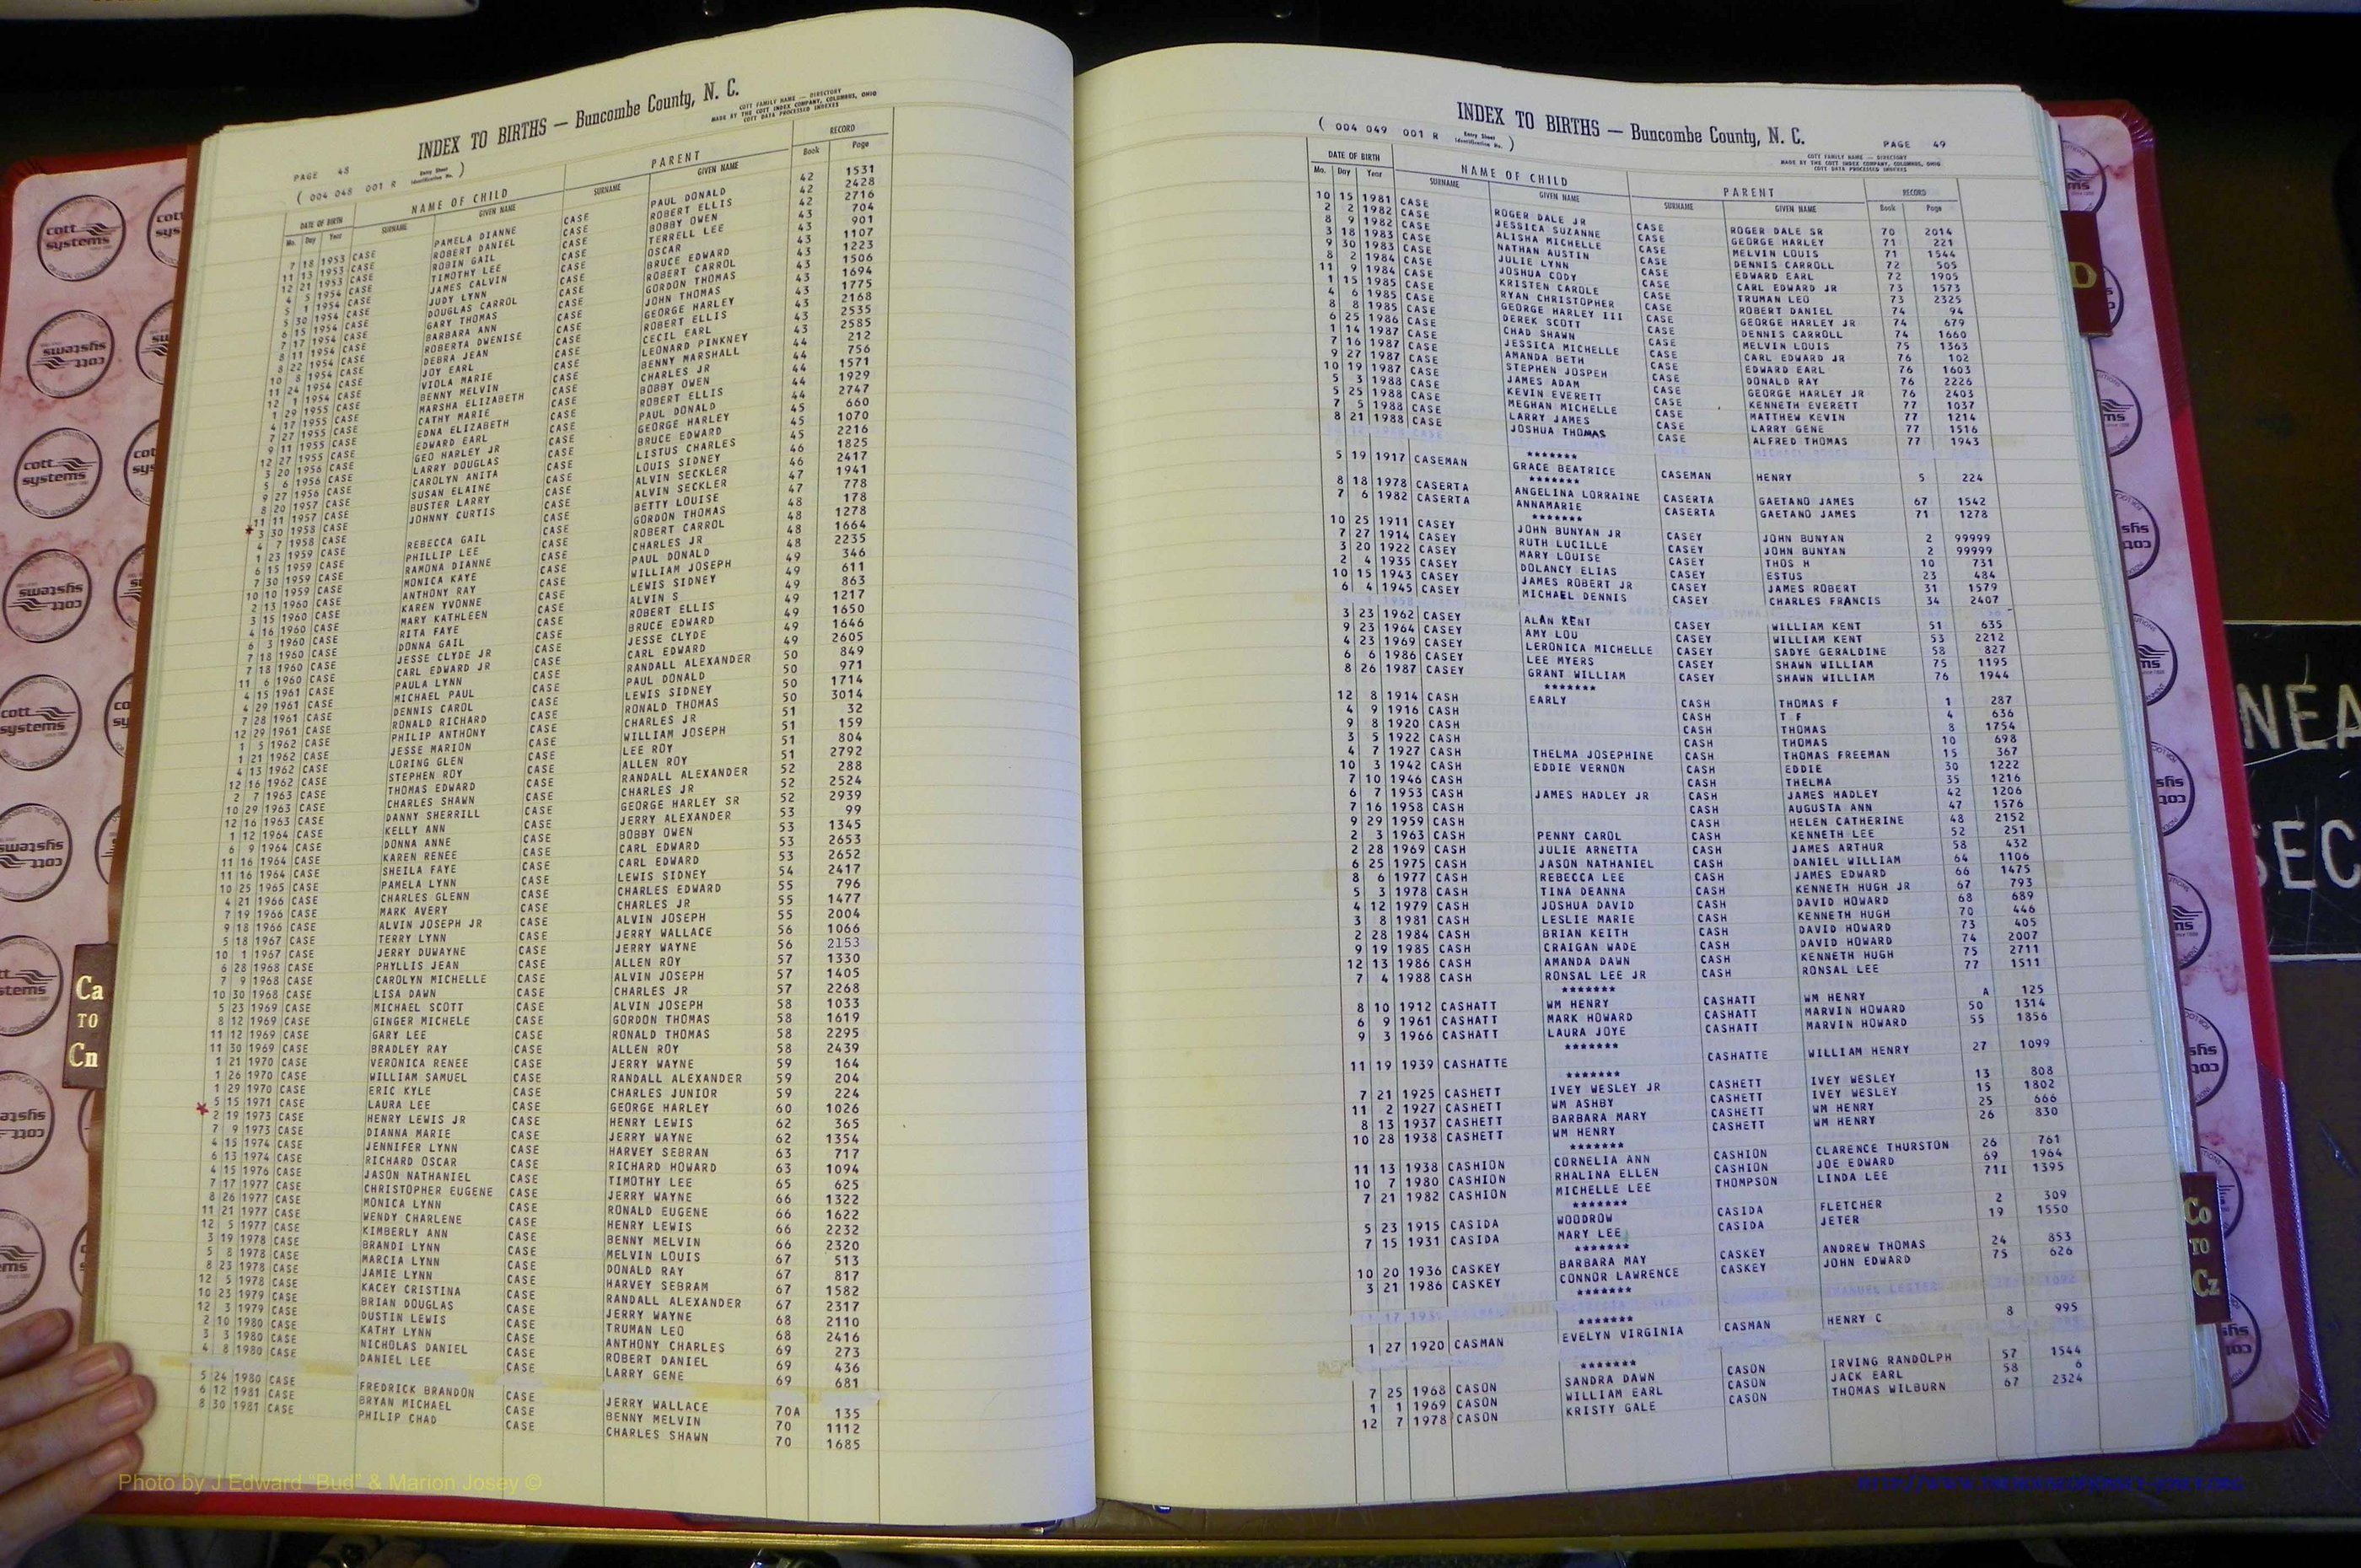 PAGE 48 INDEX TO BIRTHS — Buncombe County, N. C.
COTT FAMILY NAME — DIRECTORY
MADE BY THE COTT INDEX COMPANY, COLUMBUS, OHIO
COTT DATA PROCESSED INDEXES
( 004 048 001 R Entry Sheet Identification No. )
DATE OF BIRTH NAME OF CHILD PARENT RECORD
Mo. Day Year SURNAME GIVEN NAME SURNAME GIVEN NAME Book Page
7 18 1953 CASE PAMELA DIANNE CASE PAUL DONALD 42 1531
11 13 1953 CASE ROBERT DANIEL CASE ROBERT ELLIS 42 2428
12 21 1953 CASE ROBIN GAIL CASE BOBBY OWEN 42 2716
4 5 1954 CASE TIMOTHY LEE CASE TERRELL LEE 43 704
5 1 1954 CASE JAMES CALVIN CASE OSCAR 43 901
5 30 1954 CASE JUDY LYNN CASE BRUCE EDWARD 43 1107
6 15 1954 CASE DOUGLAS CARROL CASE ROBERT CARROL 43 1223
7 17 1954 CASE GARY THOMAS CASE GORDON THOMAS 43 1506
8 11 1954 CASE BARBARA ANN CASE JOHN THOMAS 43 1694
8 22 1954 CASE ROBERTA DWENISE CASE GEORGE HARLEY 43 1775
10 8 1954 CASE DEBRA JEAN CASE ROBERT ELLIS 43 2168
11 24 1954 CASE JOY EARL CASE CECIL EARL 43 2535
12 1 1954 CASE VIOLA MARIE CASE LEONARD PINKNEY 43 2585
1 29 1955 CASE BENNY MELVIN CASE BENNY MARSHALL 44 212
4 17 1955 CASE MARSHA ELIZABETH CASE CHARLES JR 44 756
7 27 1955 CASE CATHY MARIE CASE BOBBY OWEN 44 1571
9 11 1955 CASE EDNA ELIZABETH CASE ROBERT ELLIS 44 1929
12 27 1955 CASE EDWARD EARL CASE PAUL DONALD 44 2747
3 20 1956 CASE GEO HARLEY JR CASE GEORGE HARLEY 45 660
5 6 1956 CASE LARRY DOUGLAS CASE BRUCE EDWARD 45 1070
9 27 1956 CASE CAROLYN ANITA CASE LISTUS CHARLES 45 2216
8 20 1957 CASE SUSAN ELAINE CASE LOUIS SIDNEY 46 1825
11 11 1957 CASE BUSTER LARRY CASE ALVIN SECKLER 46 2417
3 30 1958 CASE JOHNNY CURTIS CASE ALVIN SECKLER 47 1941
4 7 1958 CASE CASE BETTY LOUISE 47 778
1 23 1959 CASE REBECCA GAIL CASE GORDON THOMAS 48 178
6 15 1959 CASE PHILLIP LEE CASE ROBERT CARROL 48 1278
7 30 1959 CASE RAMONA DIANNE CASE CHARLES JR 48 1664
10 10 1959 CASE MONICA KAYE CASE PAUL DONALD 48 2235
2 13 1960 CASE ANTHONY RAY CASE WILLIAM JOSEPH 49 346
3 15 1960 CASE KAREN YVONNE CASE LEWIS SIDNEY 49 611
4 16 1960 CASE MARY KATHLEEN CASE ALVIN S 49 863
6 3 1960 CASE RITA FAYE CASE ROBERT ELLIS 49 1217
7 18 1960 CASE DONNA GAIL CASE BRUCE EDWARD 49 1650
7 18 1960 CASE JESSE CLYDE JR CASE JESSE CLYDE 49 1646
11 6 1960 CASE CARL EDWARD JR CASE CARL EDWARD 49 2605
4 15 1961 CASE PAULA LYNN CASE RANDALL ALEXANDER 50 849
4 29 1961 CASE MICHAEL PAUL CASE PAUL DONALD 50 971
7 28 1961 CASE DENNIS CAROL CASE LEWIS SIDNEY 50 1714
12 29 1961 CASE RONALD RICHARD CASE RONALD THOMAS 50 3014
1 5 1962 CASE PHILIP ANTHONY CASE CHARLES JR 51 32
1 21 1962 CASE JESSE MARION CASE WILLIAM JOSEPH 51 159
4 13 1962 CASE LORING GLEN CASE LEE ROY 51 804
12 16 1962 CASE STEPHEN ROY CASE ALLEN ROY 51 2792
2 7 1963 CASE THOMAS EDWARD CASE RANDALL ALEXANDER 52 288
10 29 1963 CASE CHARLES SHAWN CASE CHARLES JR 52 2524
12 16 1963 CASE DANNY SHERRILL CASE GEORGE HARLEY SR 52 2939
1 12 1964 CASE KELLY ANN CASE JERRY ALEXANDER 53 99
6 9 1964 CASE DONNA ANNE CASE BOBBY OWEN 53 1345
11 16 1964 CASE KAREN RENEE CASE CARL EDWARD 53 2653
11 16 1964 CASE SHEILA FAYE CASE CARL EDWARD 53 2652
10 25 1965 CASE PAMELA LYNN CASE LEWIS SIDNEY 54 2417
4 21 1966 CASE CHARLES GLENN CASE CHARLES EDWARD 55 796
7 19 1966 CASE MARK AVERY CASE CHARLES JR 55 1477
9 18 1966 CASE ALVIN JOSEPH JR CASE ALVIN JOSEPH 55 2004
5 18 1967 CASE TERRY LYNN CASE JERRY WALLACE 56 1066
10 1 1967 CASE JERRY DUWAYNE CASE JERRY WAYNE 56 2153
6 28 1968 CASE PHYLLIS JEAN CASE ALLEN ROY 57 1330
7 9 1968 CASE CAROLYN MICHELLE CASE ALVIN JOSEPH 57 1405
10 30 1968 CASE LISA DAWN CASE CHARLES JR 57 2268
5 23 1969 CASE MICHAEL SCOTT CASE ALVIN JOSEPH 58 1033
8 12 1969 CASE GINGER MICHELE CASE GORDON THOMAS 58 1619
11 12 1969 CASE GARY LEE CASE RONALD THOMAS 58 2295
11 30 1969 CASE BRADLEY RAY CASE ALLEN ROY 58 2439
1 21 1970 CASE VERONICA RENEE CASE JERRY WAYNE 59 164
1 26 1970 CASE WILLIAM SAMUEL CASE RANDALL ALEXANDER 59 204
1 29 1970 CASE ERIC KYLE CASE CHARLES JUNIOR 59 224
5 15 1971 CASE LAURA LEE CASE GEORGE HARLEY 60 1026
2 19 1973 CASE HENRY LEWIS JR CASE HENRY LEWIS 62 365
7 9 1973 CASE DIANNA MARIE CASE JERRY WAYNE 62 1354
4 15 1974 CASE JENNIFER LYNN CASE HARVEY SEBRAN 63 717
6 13 1974 CASE RICHARD OSCAR CASE RICHARD HOWARD 63 1094
4 15 1976 CASE JASON NATHANIEL CASE TIMOTHY LEE 65 625
7 17 1977 CASE CHRISTOPHER EUGENE CASE JERRY WAYNE 66 1322
8 26 1977 CASE MONICA LYNN CASE RONALD EUGENE 66 1622
11 21 1977 CASE WENDY CHARLENE CASE HENRY LEWIS 66 2232
12 5 1977 CASE KIMBERLY ANN CASE BENNY MELVIN 66 2320
3 19 1978 CASE BRANDI LYNN CASE MELVIN LOUIS 67 513
5 8 1978 CASE MARCIA LYNN CASE DONALD RAY 67 817
8 23 1978 CASE JAMIE LYNN CASE HARVEY SEBRAM 67 1582
12 5 1978 CASE KACEY CRISTINA CASE RANDALL ALEXANDER 67 2317
10 23 1979 CASE BRIAN DOUGLAS CASE JERRY WAYNE 68 2110
12 3 1979 CASE DUSTIN LEWIS CASE TRUMAN LEO 68 2416
2 10 1980 CASE KATHY LYNN CASE ANTHONY CHARLES 69 273
3 3 1980 CASE NICHOLAS DANIEL CASE ROBERT DANIEL 69 436
4 8 1980 CASE DANIEL LEE CASE LARRY GENE 69 681
5 24 1980 CASE FREDRICK BRANDON CASE JERRY WALLACE 70A 135
6 12 1981 CASE BRYAN MICHAEL CASE BENNY MELVIN 70 1112
8 30 1981 CASE PHILIP CHAD CASE CHARLES SHAWN 70 1685
INDEX TO BIRTHS — Buncombe County, N. C. PAGE 49
( 004 049 001 R Entry Sheet Identification No. )
COTT FAMILY NAME — DIRECTORY
MADE BY THE COTT INDEX COMPANY, COLUMBUS, OHIO
COTT DATA PROCESSED INDEXES
DATE OF BIRTH NAME OF CHILD PARENT RECORD
Mo. Day Year SURNAME GIVEN NAME SURNAME GIVEN NAME Book Page
10 15 1981 CASE ROGER DALE JR CASE ROGER DALE SR 70 2014
2 2 1982 CASE JESSICA SUZANNE CASE GEORGE HARLEY 71 221
8 9 1982 CASE ALISHA MICHELLE CASE MELVIN LOUIS 71 1544
3 18 1983 CASE NATHAN AUSTIN CASE DENNIS CARROLL 72 505
9 30 1983 CASE JULIE LYNN CASE EDWARD EARL 72 1905
8 2 1984 CASE JOSHUA CODY CASE CARL EDWARD JR 73 1573
11 9 1984 CASE KRISTEN CAROLE CASE TRUMAN LEO 73 2325
1 15 1985 CASE RYAN CHRISTOPHER CASE ROBERT DANIEL 74 94
4 6 1985 CASE GEORGE HARLEY III CASE GEORGE HARLEY JR 74 679
8 8 1985 CASE DEREK SCOTT CASE DENNIS CARROLL 74 1660
6 25 1986 CASE CHAD SHAWN CASE MELVIN LOUIS 75 1363
1 14 1987 CASE JESSICA MICHELLE CASE CARL EDWARD JR 76 102
7 16 1987 CASE AMANDA BETH CASE EDWARD EARL 76 1603
9 27 1987 CASE STEPHEN JOSPEH CASE DONALD RAY 76 2226
10 19 1987 CASE JAMES ADAM CASE GEORGE HARLEY JR 76 2403
5 3 1988 CASE KEVIN EVERETT CASE KENNETH EVERETT 77 1037
5 25 1988 CASE MEGHAN MICHELLE CASE MATTHEW KEVIN 77 1214
7 5 1988 CASE LARRY JAMES CASE LARRY GENE 77 1516
8 21 1988 CASE JOSHUA THOMAS CASE ALFRED THOMAS 77 1943
*******
5 19 1917 CASEMAN GRACE BEATRICE CASEMAN HENRY 5 224
*******
8 18 1978 CASERTA ANGELINA LORRAINE CASERTA GAETANO JAMES 67 1542
7 6 1982 CASERTA ANNAMARIE CASERTA GAETANO JAMES 71 1278
*******
10 25 1911 CASEY JOHN BUNYAN JR CASEY JOHN BUNYAN 2 99999
7 27 1914 CASEY RUTH LUCILLE CASEY JOHN BUNYAN 2 99999
3 20 1922 CASEY MARY LOUISE CASEY THOS H 10 731
2 4 1935 CASEY DOLANCY ELIAS CASEY ESTUS 23 484
10 15 1943 CASEY JAMES ROBERT JR CASEY JAMES ROBERT 31 1579
6 4 1945 CASEY MICHAEL DENNIS CASEY CHARLES FRANCIS 34 2407
3 23 1962 CASEY ALAN KENT CASEY WILLIAM KENT 51 635
9 23 1964 CASEY AMY LOU CASEY WILLIAM KENT 53 2212
4 23 1969 CASEY LERONICA MICHELLE CASEY SADYE GERALDINE 58 827
6 6 1986 CASEY LEE MYERS CASEY SHAWN WILLIAM 75 1195
8 26 1987 CASEY GRANT WILLIAM CASEY SHAWN WILLIAM 76 1944
*******
12 8 1914 CASH EARLY CASH THOMAS F 1 287
4 9 1916 CASH CASH T F 4 636
9 8 1920 CASH CASH THOMAS 8 1754
3 5 1922 CASH CASH THOMAS 10 698
4 7 1927 CASH THELMA JOSEPHINE CASH THOMAS FREEMAN 15 367
10 3 1942 CASH EDDIE VERNON CASH EDDIE 30 1222
7 10 1946 CASH CASH THELMA 35 1216
6 7 1953 CASH JAMES HADLEY JR CASH JAMES HADLEY 42 1206
7 16 1958 CASH CASH AUGUSTA ANN 47 1576
9 29 1959 CASH CASH HELEN CATHERINE 48 2152
2 3 1963 CASH PENNY CAROL CASH KENNETH LEE 52 251
2 28 1969 CASH JULIE ARNETTA CASH JAMES ARTHUR 58 432
6 25 1975 CASH JASON NATHANIEL CASH DANIEL WILLIAM 64 1106
8 6 1977 CASH REBECCA LEE CASH JAMES EDWARD 66 1475
5 3 1978 CASH TINA DEANNA CASH KENNETH HUGH JR 67 793
4 12 1979 CASH JOSHUA DAVID CASH DAVID HOWARD 68 689
3 8 1981 CASH LESLIE MARIE CASH KENNETH HUGH 70 446
2 28 1984 CASH BRIAN KEITH CASH DAVID HOWARD 73 405
9 19 1985 CASH CRAIGAN WADE CASH DAVID HOWARD 74 2007
12 13 1986 CASH AMANDA DAWN CASH KENNETH HUGH 75 2711
7 4 1988 CASH RONSAL LEE JR CASH RONSAL LEE 77 1511
*******
8 10 1912 CASHATT WM HENRY CASHATT WM HENRY A 125
6 9 1961 CASHATT MARK HOWARD CASHATT MARVIN HOWARD 50 1314
9 3 1966 CASHATT LAURA JOYE CASHATT MARVIN HOWARD 55 1856
*******
11 19 1939 CASHATTE CASHATTE WILLIAM HENRY 27 1099
*******
7 21 1925 CASHETT IVEY WESLEY JR CASHETT IVEY WESLEY 13 808
11 2 1927 CASHETT WM ASHBY CASHETT IVEY WESLEY 15 1802
8 13 1937 CASHETT BARBARA MARY CASHETT WM HENRY 25 666
10 28 1938 CASHETT WM HENRY CASHETT WM HENRY 26 830
*******
11 13 1938 CASHION CORNELIA ANN CASHION CLARENCE THURSTON 26 761
10 7 1980 CASHION RHALINA ELLEN CASHION JOE EDWARD 69 1964
7 21 1982 CASHION MICHELLE LEE THOMPSON LINDA LEE 71I 1395
*******
5 23 1915 CASIDA WOODROW CASIDA FLETCHER 2 309
7 15 1931 CASIDA MARY LEE CASIDA JETER 19 1550
*******
10 20 1936 CASKEY BARBARA MAY CASKEY ANDREW THOMAS 24 853
3 21 1986 CASKEY CONNOR LAWRENCE CASKEY JOHN EDWARD 75 626
*******
*******
1 27 1920 CASMAN EVELYN VIRGINIA CASMAN HENRY C 8 995
*******
7 25 1968 CASON SANDRA DAWN CASON IRVING RANDOLPH 57 1544
1 1 1969 CASON WILLIAM EARL CASON JACK EARL 58 6
12 7 1978 CASON KRISTY GALE CASON THOMAS WILBURN 67 2324
Ca TO Cn
Co TO Cz
D
cott systems
NEA
SEC
Photo by J Edward "Bud" & Marion Josey ©
HTTP://WWW.THEHOUSEOFJOSSEY-JOSEY.ORG